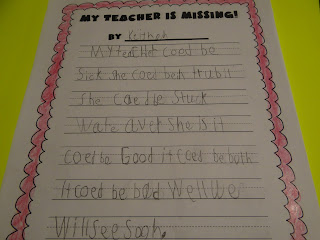 MY TEACHER IS MISSING!
BY
My teacher coed be
Sick she coed beh
She coed be Stuck
She is it
coed be Good it coed be both
it coed be bad Well Wer
Will See Soon.